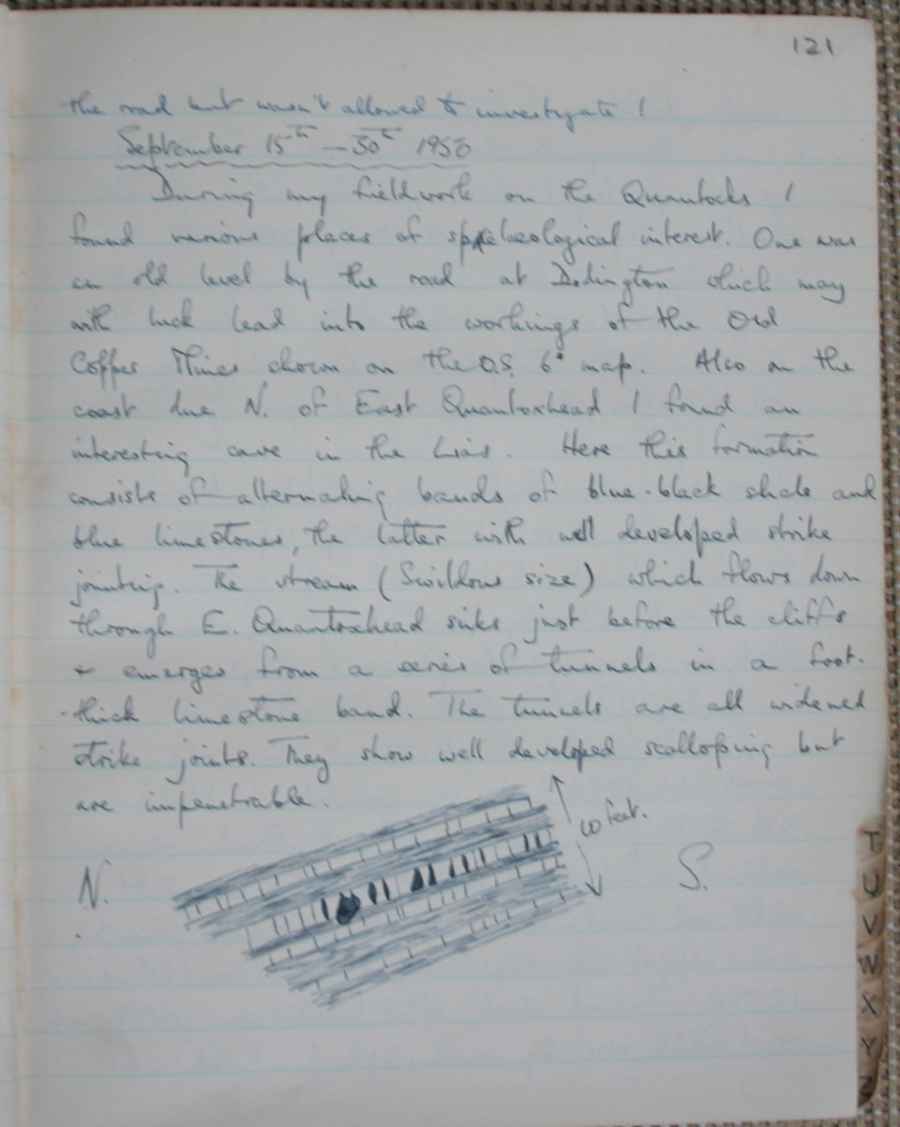 121
the road but wasn't allowed to investigate!
September 15th – 30th 1958
During my fieldwork on the Quantocks I
found various places of speleological interest. One was
an old level by the road at Dodington which may
with luck lead into the workings of the Old
Copper Mines shown on the O.S. 6" map. Also on the
coast due N. of East Quantoxhead I found an
interesting cave in the Lias. Here this formation
consists of alternating bands of blue-black shale and
blue limestones, the latter with well developed strike
jointing. The stream (Swildons size) which flows down
through E. Quantoxhead sinks just before the cliffs
& emerges from a series of tunnels in a foot-
-thick limestone band. The tunnels are all widened
strike joints. They show well developed scalloping but
are impenetrable.
feet.
N.
S.
T
U
V
W
X
Y
Z